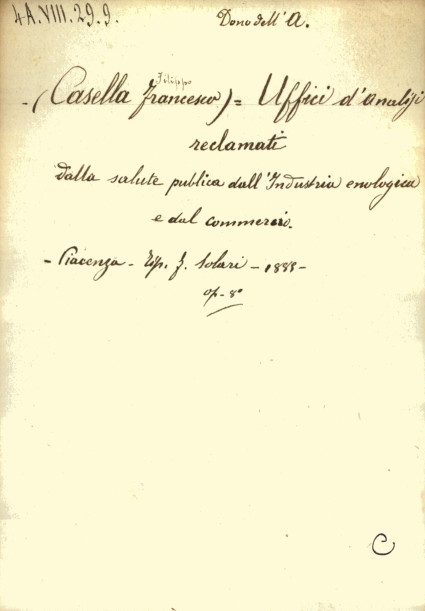 4A.VIII.29.9.
Dono dell'A.
Filippo
- (Casella Francesco) = Uffici d'analisi
reclamati
dalla salute publica dall'Industria enologica
e dal commercio.
- Piacenza - Tip. F. Solari - 1885 -
op - 8°
C